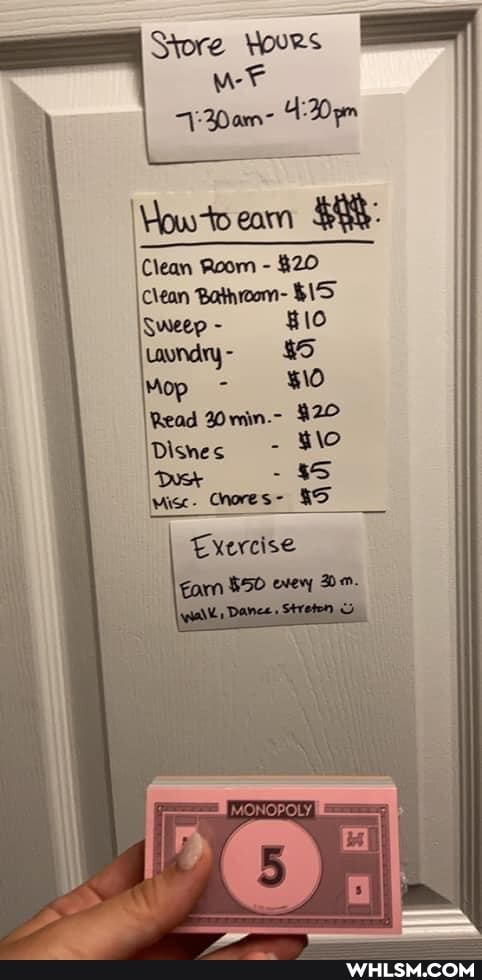 Store HOURS
M-F
7:30am - 4:30pm
How to earn $$$:
Clean Room - $20
Clean Bathroom - $15
Sweep - $10
Laundry - $5
Mop - $10
Read 30 min. - $20
Dishes - $10
Dust - $5
Misc. Chores - $5
Exercise
Earn $50 every 30 m.
Walk, Dance, Stretch
MONOPOLY
5
5
WHLSM.COM